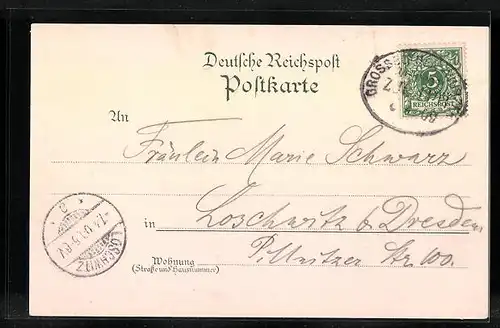 Deutsche Reichspost
Postkarte
5
REICHSPOST
An
Fräulein Marie Schwarz
in Loschwitz b Dresden
Pillnitzer Str.
Wohnung
(Straße und Hausnummer)
LOSCHWITZ